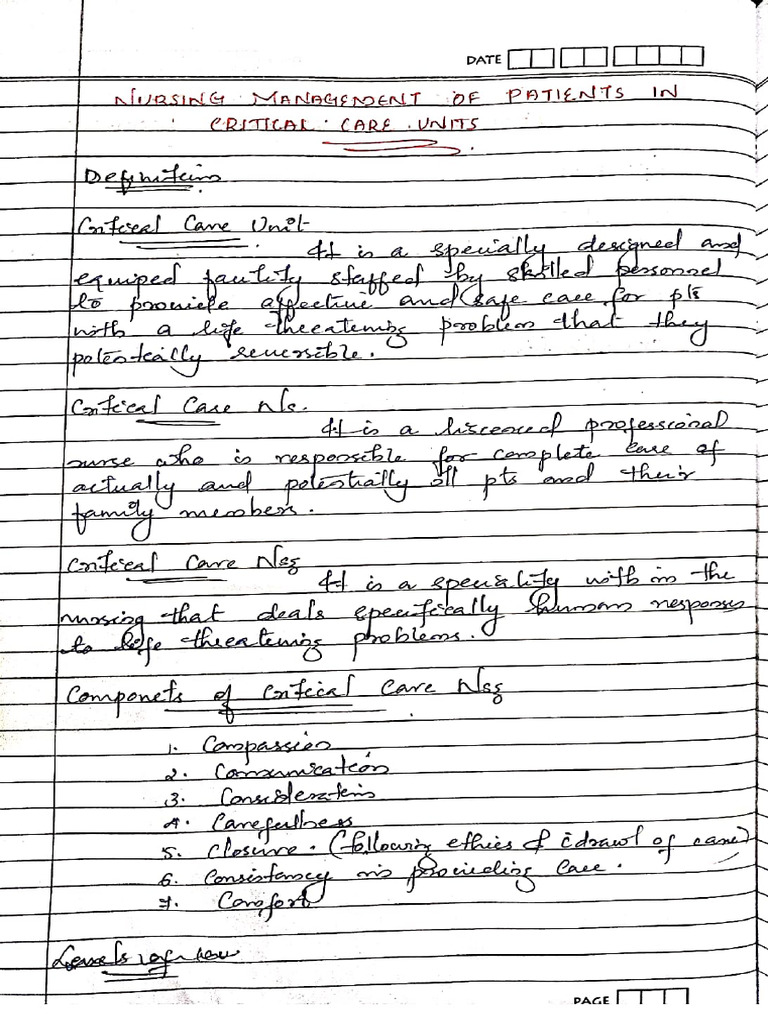 DATE
NURSING MANAGEMENT OF PATIENTS IN
CRITICAL CARE UNITS
Definition
Critical Care Unit
It is a specially designed and
equiped facility staffed by skilled personnel
to provide effective and safe care for pts
with a life threatening problem that they
potentially reversible.
Critical Care N/s.
It is a liscenced professional
nurse who is responsible for complete care of
actually and potentially ill pts and their
family members.
Critical Care Nsg
It is a speciality with in the
nursing that deals specifically human responses
to life threatening problems.
Componets of Critical Care Nsg
1. Compassion
2. Communication
3. Consideration
4. Carefulness
5. Closure. (following ethics of c̄drawl of care)
6. Consistancy in providing care.
7. Comfort
Levels of
PAGE